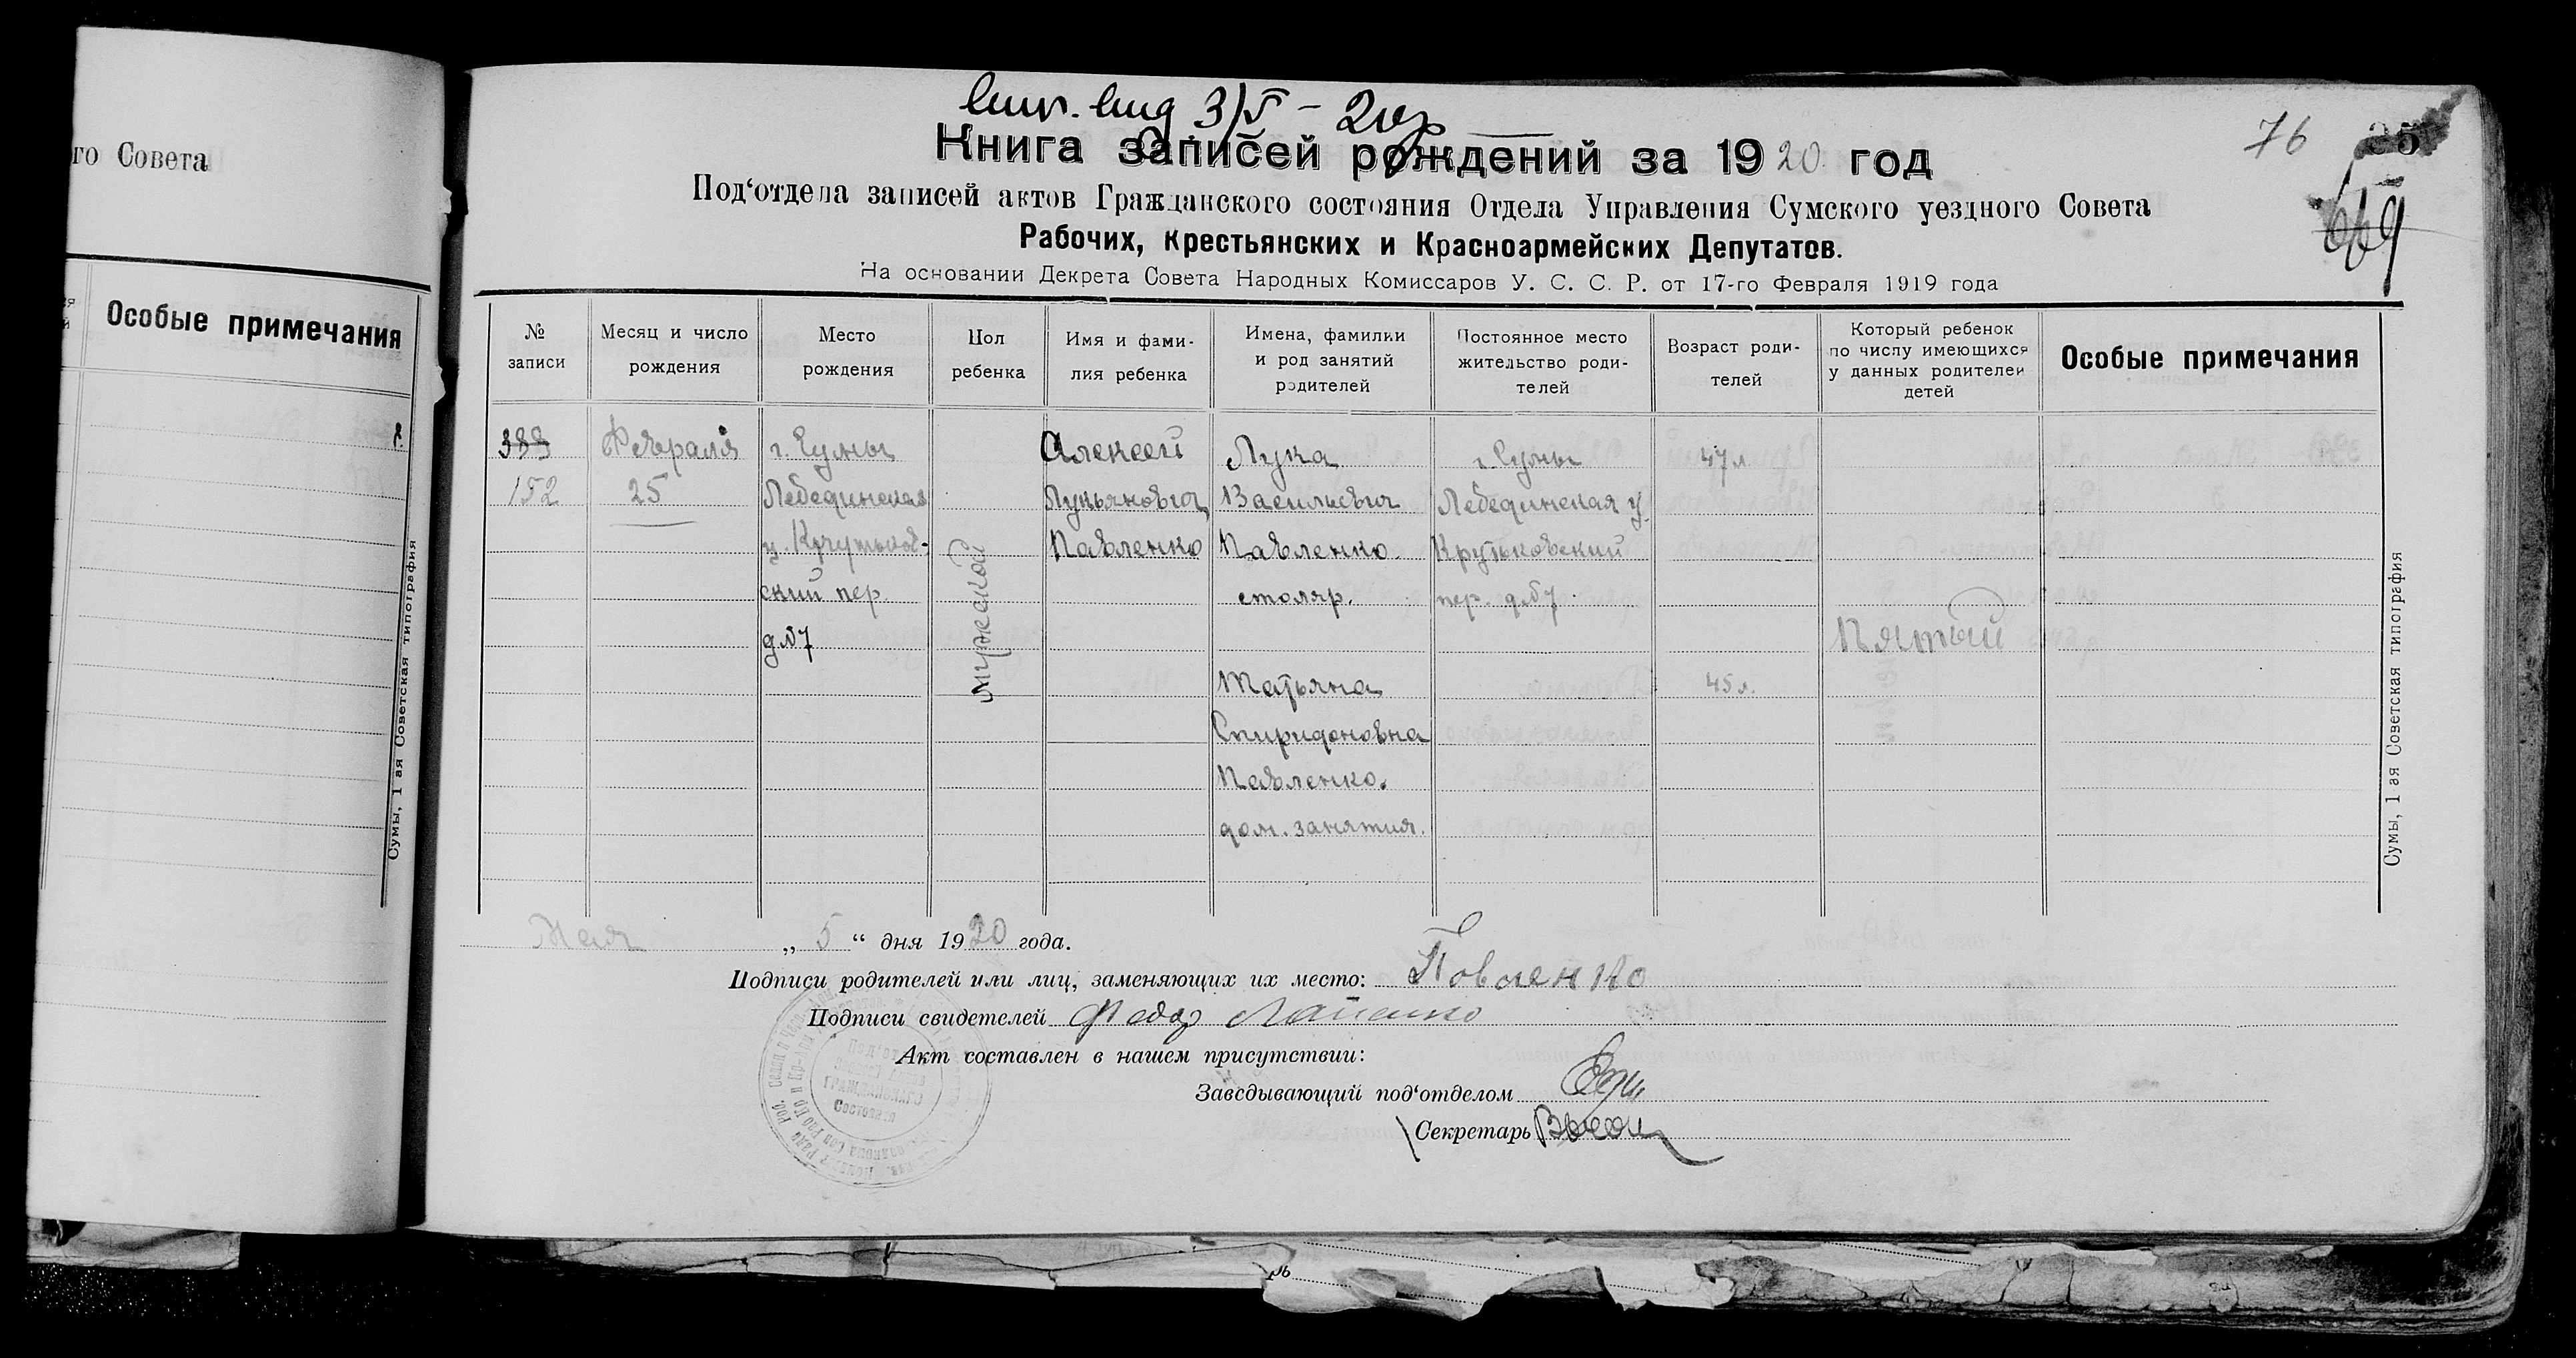 го Совета
Особые примечания
Сумы, 1 ая Советская типография
76
Книга записей рождений за 1920 год
Под‘отдела записей актов Гражданского состояния Отдела Управления Сумского уездного Совета
Рабочих, Крестьянских и Красноармейских Депутатов.
На основании Декрета Совета Народных Комиссаров У. С. С. Р. от 17-го Февраля 1919 года
№ записи
Месяц и число рождения
Место рождения
Пол ребенка
Имя и фами-
лия ребенка
Имена, фамилии
и род занятий
родителей
Постоянное место
жительство роди-
телей
Возраст роди-
телей
Который ребенок
по числу имеющихся
у данных родителей
детей
Особые примечания
389
152
Февраля
25
г. Сумы
Лебединская
ский пер.
д №7
мужской
Алексей
Лукьянович
Павленко
Лука
Васильевич
Павленко
столяр.
Татьяна
Спиридоновна
Павленко.
дом. занятия.
г. Сумы
Лебединская у.
Крутьковский
пер. д №7.
47 л.
45 л.
Пятый
Сумы, 1 ая Советская типография
Мая „ 5 “ дня 1920 года.
Подписи родителей или лиц, заменяющих их место: Повленко
Подписи свидетелей Федор
Акт составлен в нашем присутствии:
Заведывающий под‘отделом
Секретарь